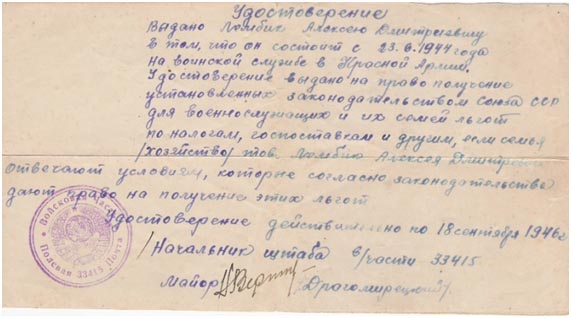 Удостоверение
Выдано Ломбик Алексею Дмитриевичу
в том, что он состоит с 23.6.1944 года
на воинской службе в Красной Армии.
Удостоверение выдано на право получение
установленных законодательством Союза ССР
для военнослужащих и их семей льгот
по налогам, госпоставкам и другим, если семья
/хозяйство/ тов. Ломбика Алексея
отвечают условиям, которые согласно законодательства
дают право на получение этих льгот
Удостоверение действительно по 18 сентября 1946 г
/Начальник штаба в/части 33415
Майор /Драгомирецкий/.
Полевая Почта 33415